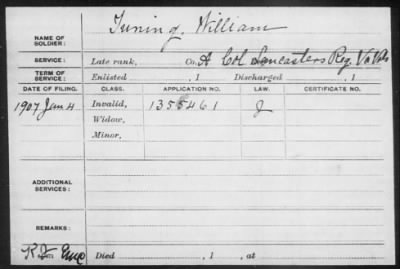 NAME OF SOLDIER: Tuning, William
SERVICE: Late rank, Co. A Col Lancasters Reg. Va Vols
TERM OF SERVICE: Enlisted , 1 Discharged , 1
DATE OF FILING. CLASS. APPLICATION NO. LAW. CERTIFICATE NO.
1907 Jan 4 Invalid, 1355461 J
Widow,
Minor,
ADDITIONAL SERVICES:
REMARKS:
Died , 1 , at